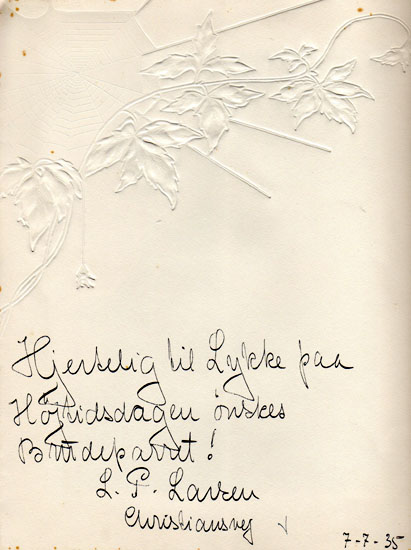 Hjertelig til Lykke paa
Højtidsdagen ønskes
Brudeparret!
L. P. Larsen
Christiansvej
7-7-35